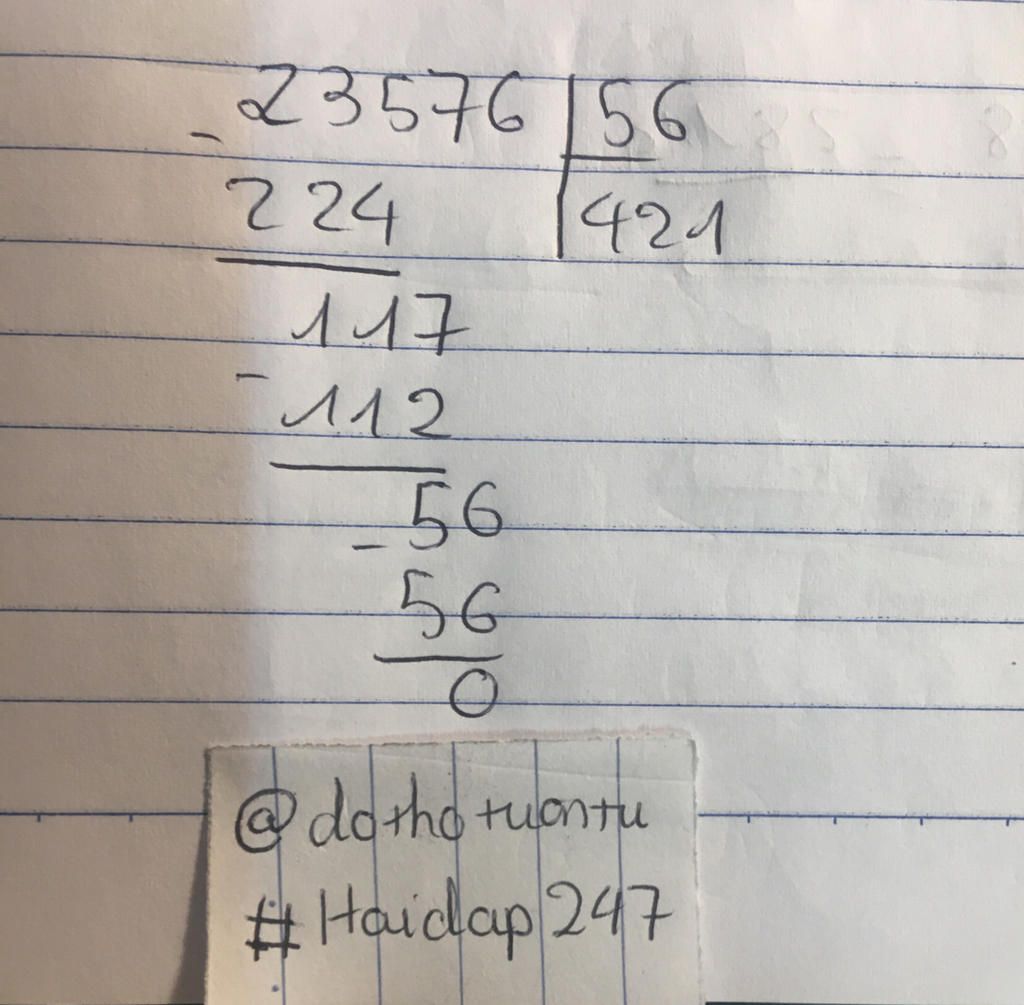 23576 | 56
- 224 | 421
117
- 112
56
- 56
0
@dothotuantu
#Haidap247